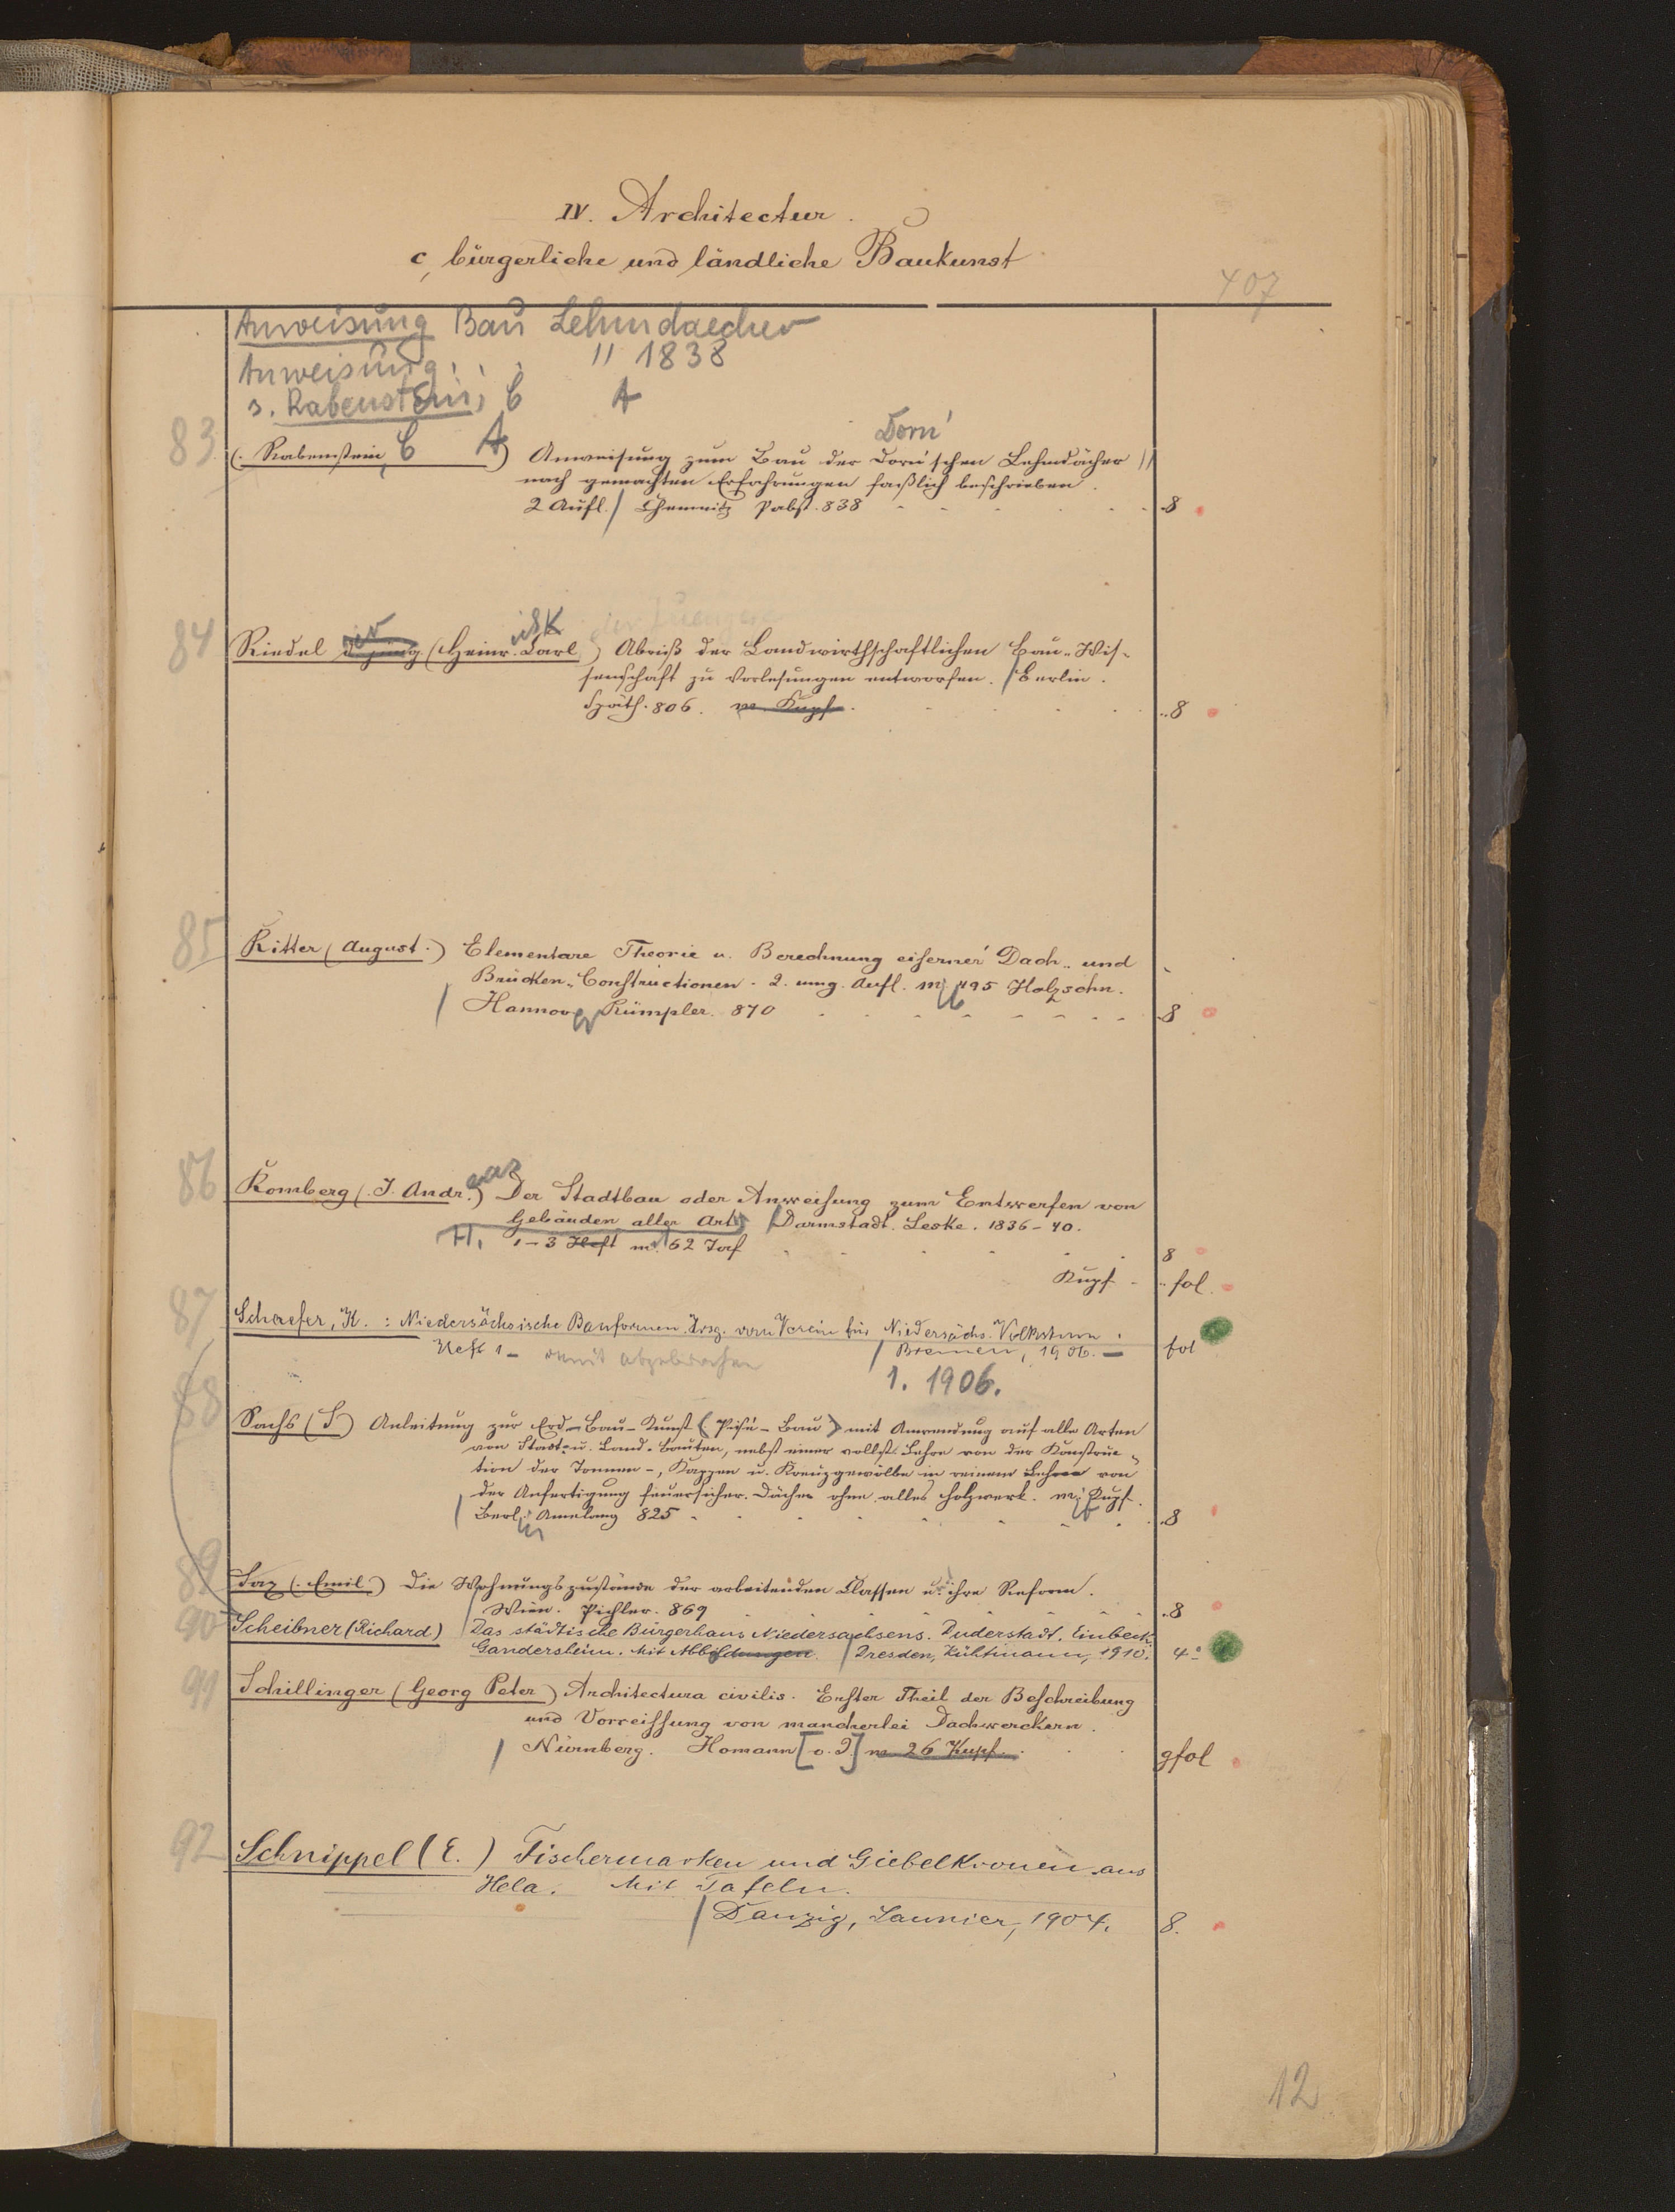 IV. Architectur.
c, bürgerliche und ländliche Baukunst
407
Anweisung Bau Lehmdaecher
Anweisung . . . " 1838
s. Rabenstein, C A
Dorn'
83 (. Rabenstein, C A) Anweisung zum Bau der Dorn'schen Lehmdächer //
nach gemachten Erfahrungen faßlich beschrieben.
2 Aufl. / Chemnitz Pabst. 838 8
84 Riedel d. jüng. (Heinr. Carl) Abriß der Landwirthschaftlichen Bau-Wis-
senschaft zu Vorlesungen entworfen. / Berlin.
Späth. 806. m. Kupf. 8
85 Ritter (August.) Elementare Theorie u. Berechnung eiserner Dach- und
Brücken-Constructionen. 2. umg. Aufl. m. 495 Holzschn.
/ Hannover Rümpler. 870 8
86 Romberg (. J. Andr.eas) Der Stadtbau oder Anweisung zum Entwerfen von
Gebäuden aller Art. / Darmstadt. Leske. 1836-40.
H. 1-3 Heft m. 62 Taf 8
Kupf. fol.
87 Schaefer, K. : Niedersächsische Bauformen. Hrsg. vom Verein für Niedersächs. Volkstum.
Heft 1- damit abgebrochen / Bremen, 1906. - fol
1. 1906.
88 Sachs (S) Anleitung zur Erd-Bau-Kunst (Pisé-Bau) mit Anwendung auf alle Arten
von Stadt- u. Land-Bauten, nebst einer vollst. Lehre von der Construc-
tion der Tonnen-, Kappen u. Kreuzgewölbe in reinem Lehm von
der Anfertigung feuersicher. Dächer ohne alles Holzwerk. m. Kupf.
/ Berlin Amelang 825 8
89 Sax (. Emil.) Die Wohnungszustände der arbeitenden Classen u. ihre Reform.
/ Wien. Pichler. 869 8
90 Scheibner (Richard) / Das städtische Bürgerhaus Niedersachsens. Duderstadt, Einbeck,
Gandersheim. Mit Abbildungen. / Dresden, Kühtmann, 1910. 4°
91 Schillinger (Georg Peter) Architectura civilis. Erster Theil der Beschreibung
und Vorreissung von mancherlei Dachwerckern.
/ Nürnberg. Homann [o. J.] m 26 Kupf. gfol
92 Schnippel (E.) Fischermarken und Giebelkronen aus
Hela. Mit Tafeln.
/ Danzig, Saunier, 1904. 8.
12